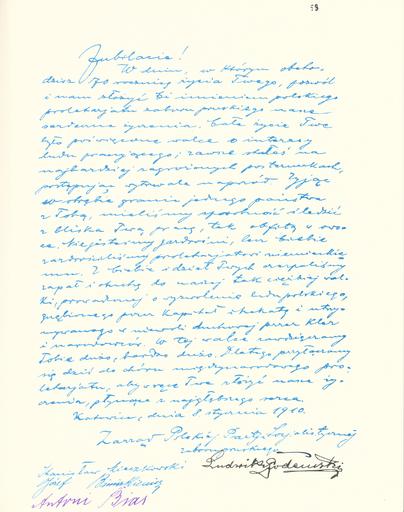 59
Jubilacie!
W dniu, w którym obcho-
dzisz 70 rocznicę życia Twego, pozwól
i nam złożyć Ci imieniem polskiego
proletarjatu zaboru pruskiego nasze
serdeczne życzenia. Całe życie Twe
było poświęcone walce o interesy
ludu pracującego; zawsze stałeś na
najbardziej zagrożonych posterunkach,
postępując wytrwale naprzód. Żyjąc
w obrębie granic jednego państwa
z Tobą, mieliśmy sposobność śledzić
z bliska Twą pracę, tak obfitą w owo-
ce, niejednokrotnie
zazdrościliśmy proletarjatowi niemieckie-
mu. Z Ciebie i dzieł Twych czerpaliśmy
zapał i otuchę do naszej tak ciężkiej wal-
ki, prowadzonej o wyzwolenie ludu polskiego,
gnębionego przez kapitał i hakatę i utrzy-
mywanego w niewoli duchowej przez kler
i narodowców. W tej walce zawdzięczamy
Tobie dużo, bardzo dużo. Dlatego przyłączamy
się dziś do chóru międzynarodowego pro-
letarjatu, aby wraz Twe złożyć nasze ży-
czenia, płynące z najgłębszego serca.
Katowice, dnia 8 stycznia 1910.
Zarząd Polskiej Partji Socjalistycznej
zaboru pruskiego
Stanisław Mieszkowski
Józef
Antoni Bias